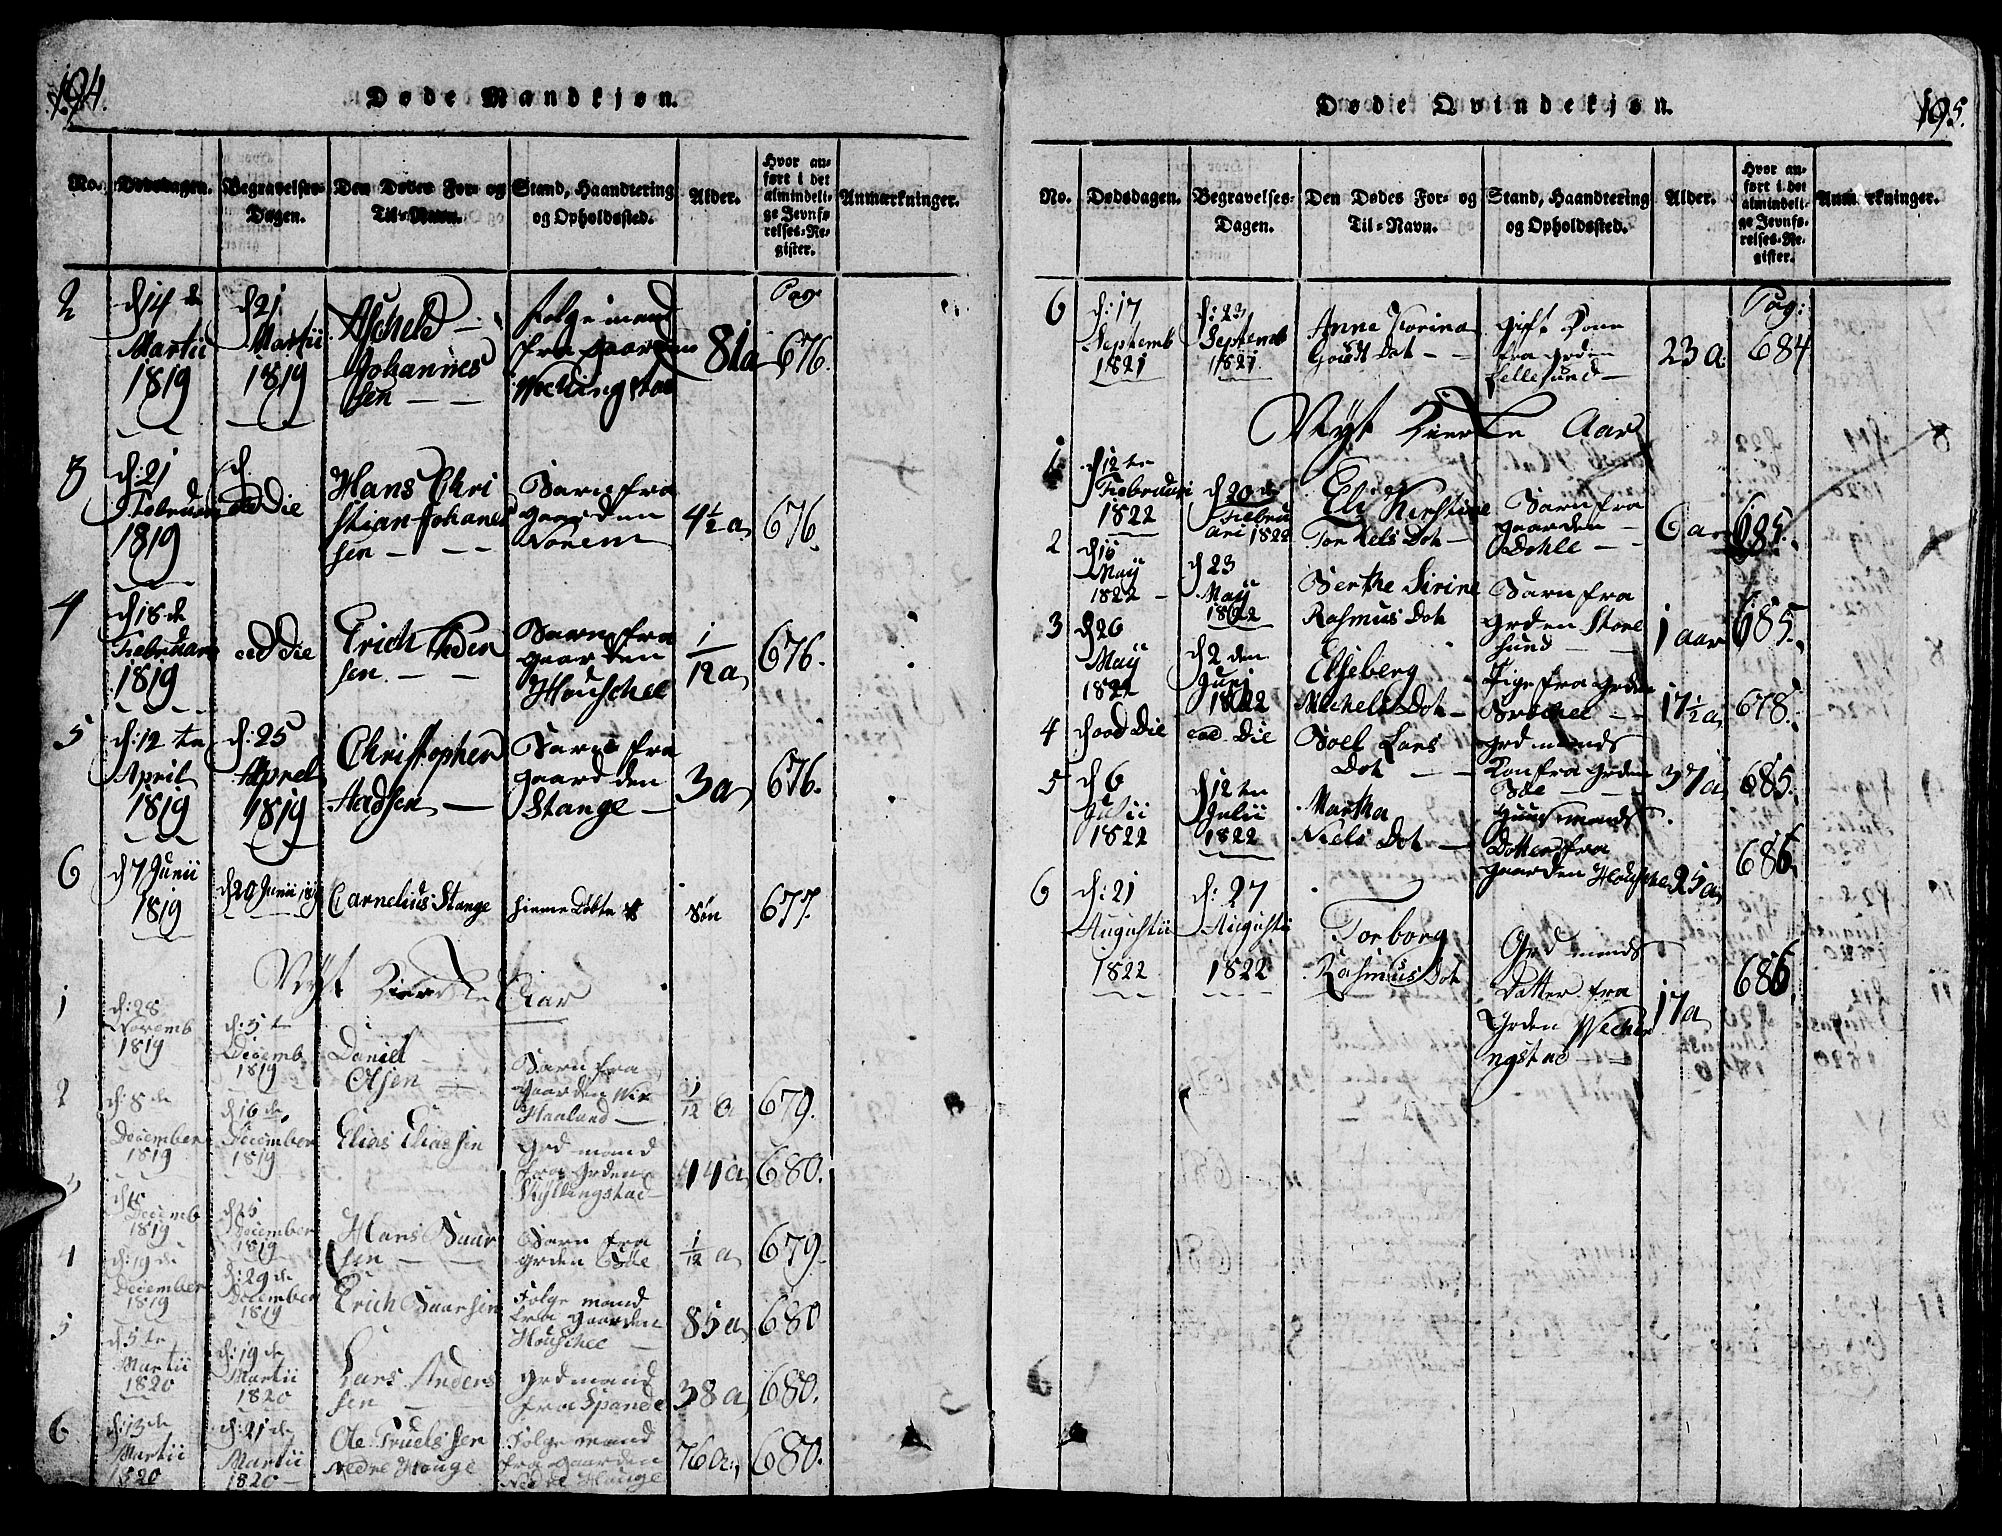 194.
Døde Mandkjøn.
No. Dødsdagen. Begravelses-Dagen. Den Dødes For- og Til-Navn. Stand, Haandtering og Opholdssted. Alder. Hvor anført i det almindelige Jevnførelses-Register. Anmærkninger.
2 d. 14 de Martii 1819 d. 21 Martii 1819 Johannes sen Folge mand fra gaarden 81 a Pag. 676.
3 d: 21 Februar 1819 d. eod Die Hans Christian Johanes sen Barn fra gaarden Norem 4½ a 676.
4 d 18 de Februar 1819 eod Die Erich Peder sen Barn fra gaarden Houschee 1/12 a 676.
5 d: 12 te April 1819 d: 25 April 1819 Christopher Aadsen Barn fra gaard den Stange 3 a 676.
6 d 7 Junii 1819 d 20 Junii 1819 Carnelius Stange hieme døbte søn 677.
Nyt Kierke Aar
1 d: 28 Novemb 1819 d: 5 te Decemb 1819 Daniel Olsen Barn fra gaarden Haaland 1/12 a 679.
2 d: 8 de December 1819 d 16 de December 1819 Elias Eliassen Grd mand fra Grden Kyllingstad 44 a 680.
3 Decemb 1819 d 25 December 1819 Hans Baar sen Barn fra grden Bøe 1/12 a 679.
4 d: 19 de December 1819 d: 29 de December 1819 Erich Baarsen Folge mand fra gaarden Houschee 85 a 680
5 d 5 te Martii 1820 d: 19 de Martii 1820 Lars Anders sen grd mand fra Spande 38 a 680.
6 d: 13 de Martii 1820 d: 21 de Martii 1820 Ole Truels sen Nedre Houge Folge mand fra gaarden Nedre Houge 76 a. 680.
195.
Døde Qvindekjøn.
No. Dødsdagen. Begravelses-Dagen. Den Dødes For- og Til-Navn. Stand, Haandtering og Opholdssted. Alder. Hvor anført i det almindelige Jevnførelses-Register. Anmærkninger.
6 d: 17 Septemb 1821 d: 23 Septemb 1821 Anne Torina Goudt Dot gift Kone fra grden Lellesund 23 a Pag: 684
Nyt Kierke Aar
1 d 12 te Februari 1822 d 20 de Februari 1822 Eli Kirstine Torkels Dot Barn fra gaarden Dahle 6 a 685.
2 d 16 Maij 1822 d 23 Maij 1822 Berthe Sirine Rasmus Dot Barn fra grden Store Sund 1 aar 685.
3 d 26 Maij 1822 d 2 den Junj 1822 Elseberg Michels Dot Pige fra grden 17½ a 678.
4 d eod Die eod. Die Boel Lars Dot grd mands Kon fra grden Bøe 37 a 685.
5 d 6 Julii 1822 d 12 te Julii 1822 Martha Niels Dot Huusmands Dotter fra gaarden Houschee 25 a 686
6 d: 21 Augustii 1822 d: 27 Augustii 1822 Torborg Rasmus Dot Grd mands Datter fra Grden 17 a 686